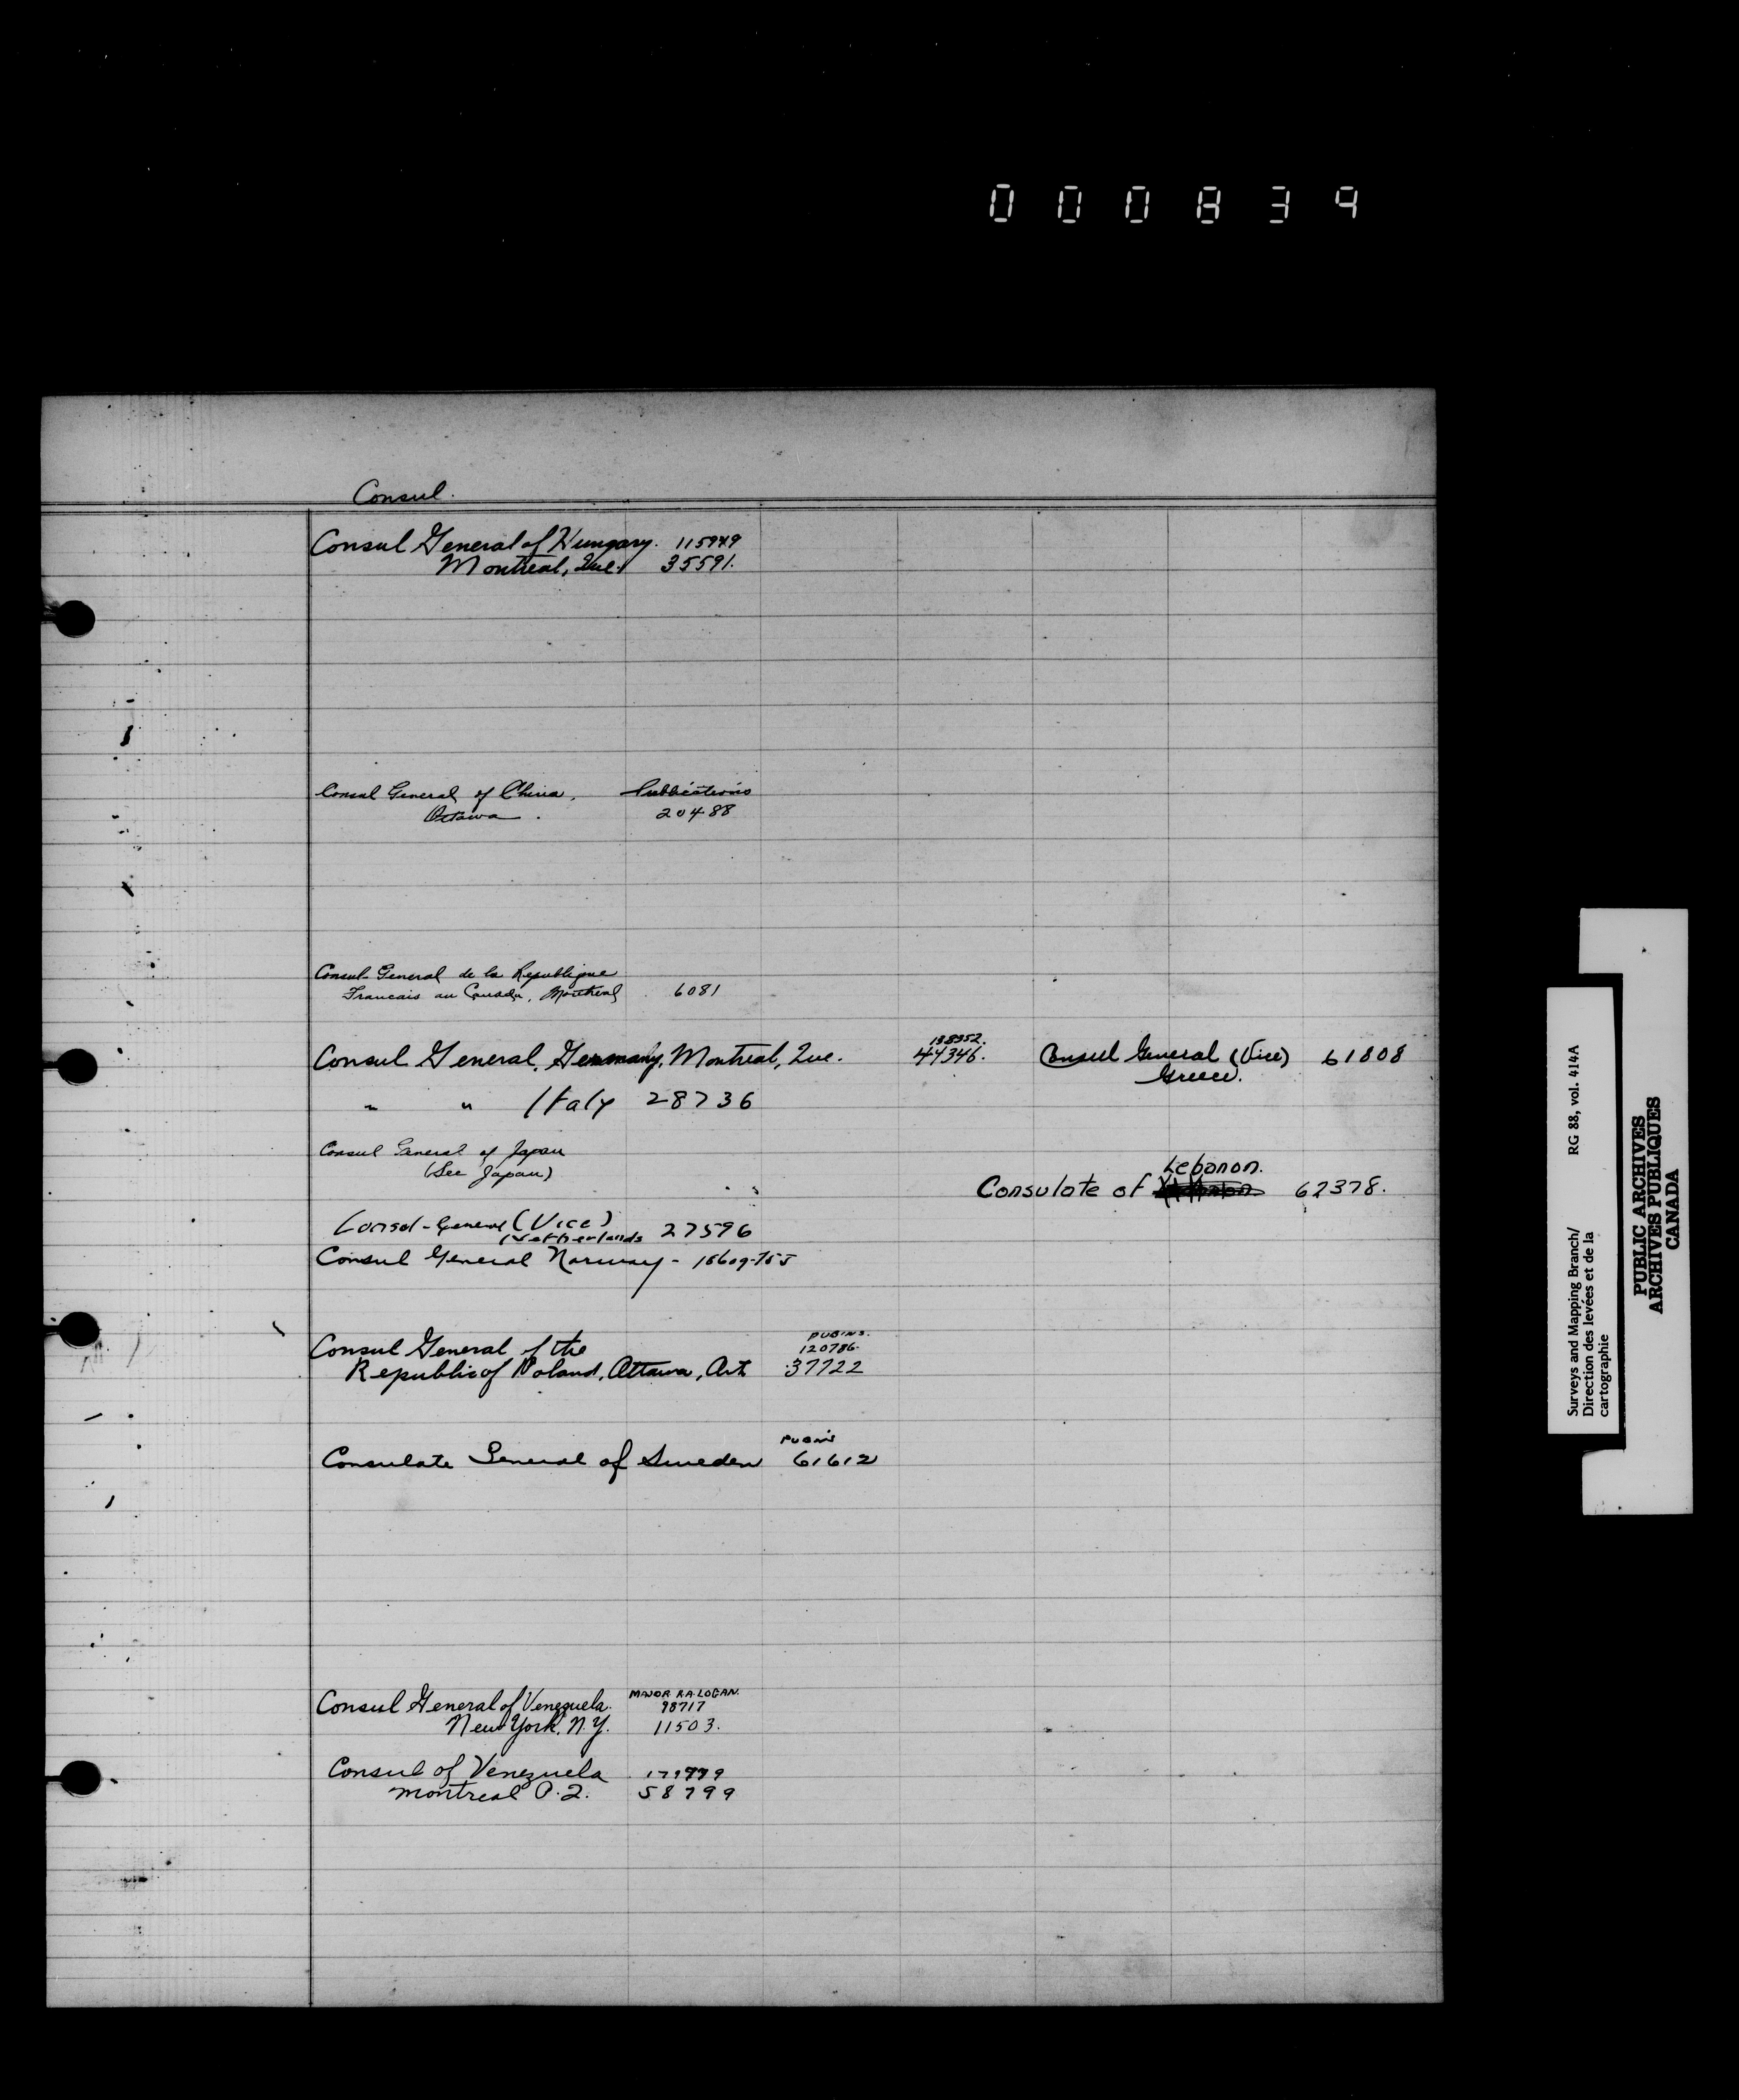 000839
Consul.
Consul General of Hungary. 115949
Montreal, Que. 35591.
Consul General of China, Publications
Ottawa. 20488
Consul General de la Republique
Francais au Canada, Montreal 6081
198952.
Consul General, Germany, Montreal, Que. 44346. Consul General (Vice) 61808
Greece.
" " Italy 28736
Consul General of Japan
(See Japan)
Lebanon.
Consulate of 62378.
Consul-General (Vice)
Netherlands 27596
Consul General Norway -
PUBINS.
Consul General of the 120786.
Republic of Poland, Ottawa, Ont 37722
PUBNS
Consulate General of Sweden 61612
MAJOR R.A. LOGAN.
Consul General of Venezuela. 98717
New York, N.Y. 11503.
Consul of Venezuela
Montreal P.Q. 58799
Surveys and Mapping Branch/ RG 88, vol. 414A
Direction des levées et de la
cartographie
PUBLIC ARCHIVES
ARCHIVES PUBLIQUES
CANADA